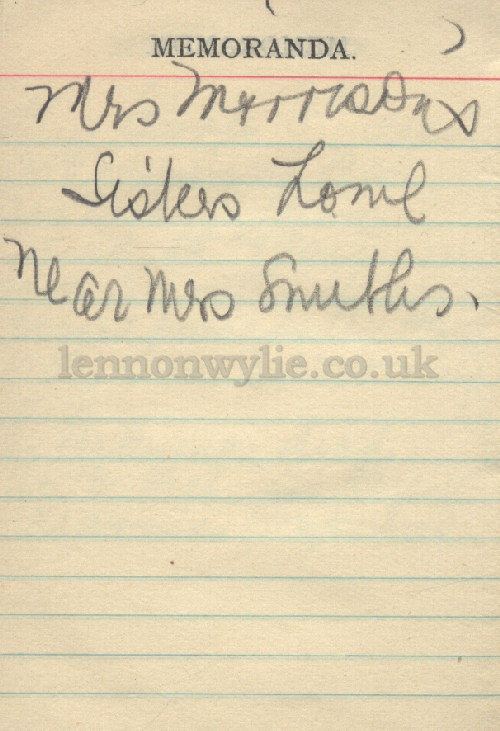 MEMORANDA.
Mrs Morrisons
Sisters
near Mrs Smiths.
lennonwylie.co.uk